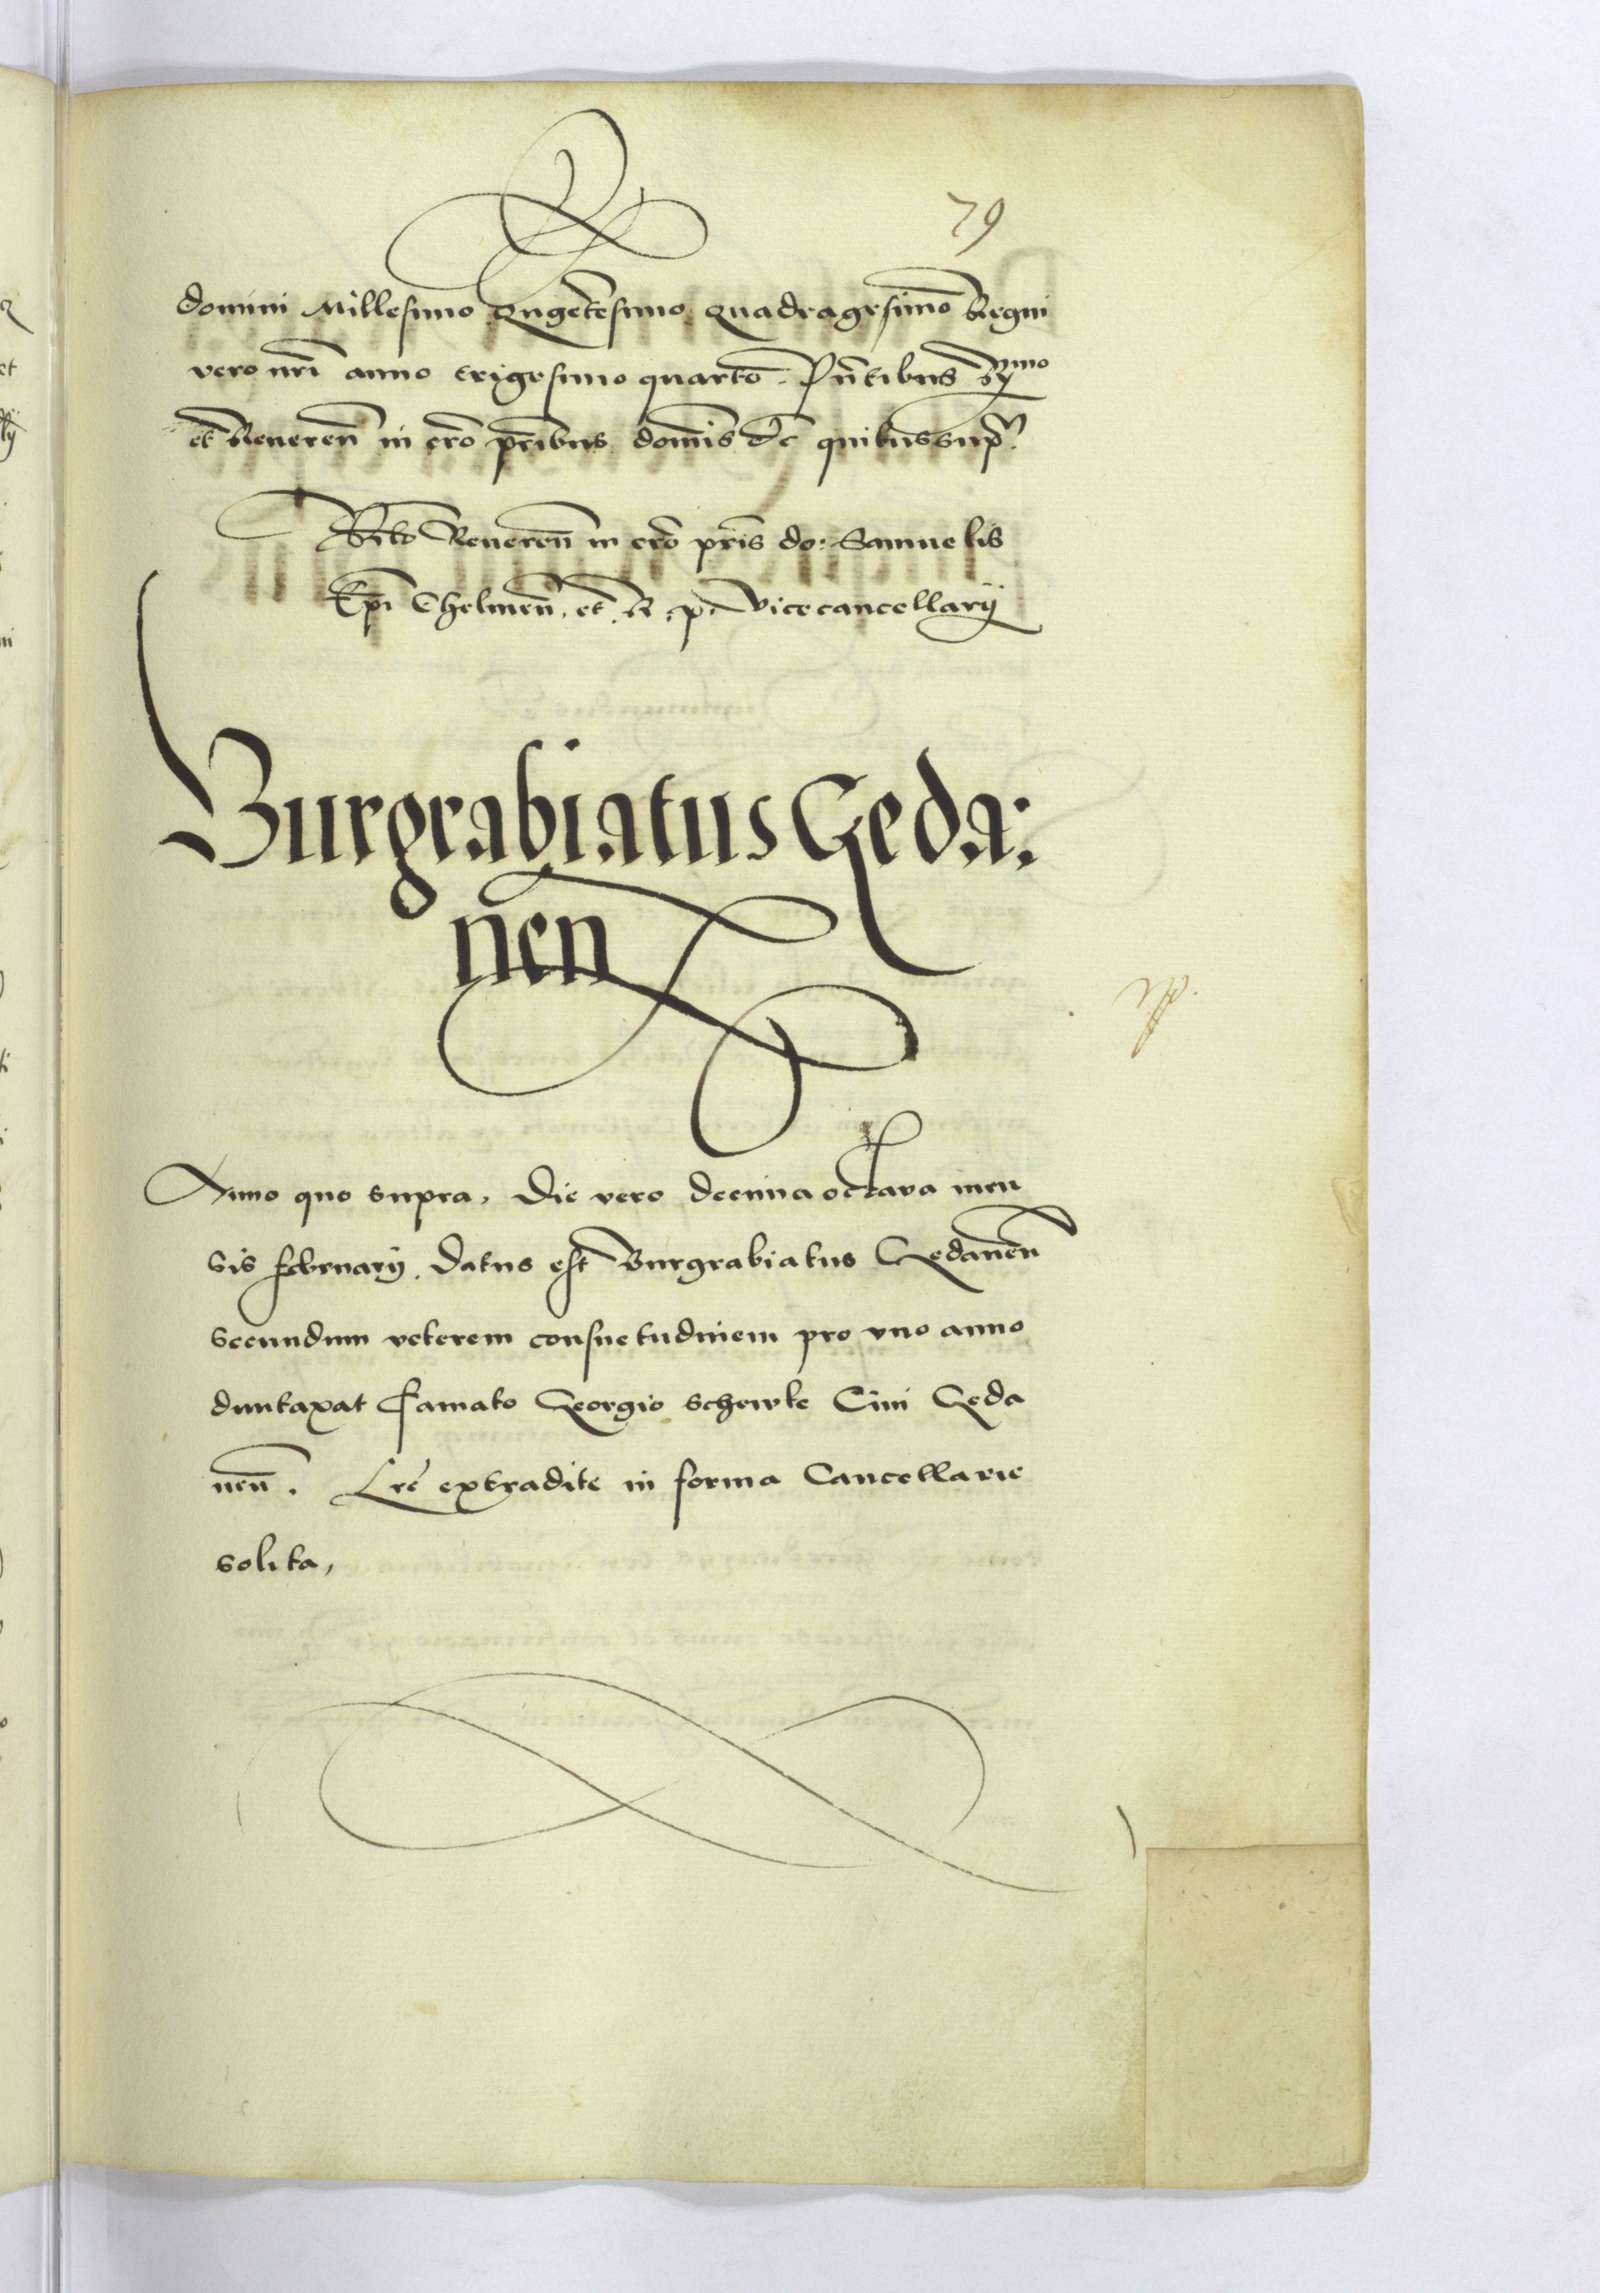 79
domini Millesimo Qngētesimo Quadragesimo Regni
vero nr̄i anno trigesimo quarto. Pn̄tibus R^mo
et Reueren̄ in cr̄o pr̄ibus domīs &c quibus sup^a
Rēlo Reueren̄ in cr̄o pr̄is do: Samuelis
Ep̄i Chelmen̄. et R. p. Vicecancellarij
Burgrabiatus Geda:
nen̄
Anno quo supra, Die vero decima octava men
sis februarij. Datus est Burgrabiatus Gedanen̄
secundum veterem consuetudinem pro vno anno
duntaxat famato Georgio schewke Ciui Geda
nen̄. Lr̄e extradite in forma Cancellarie
solita,